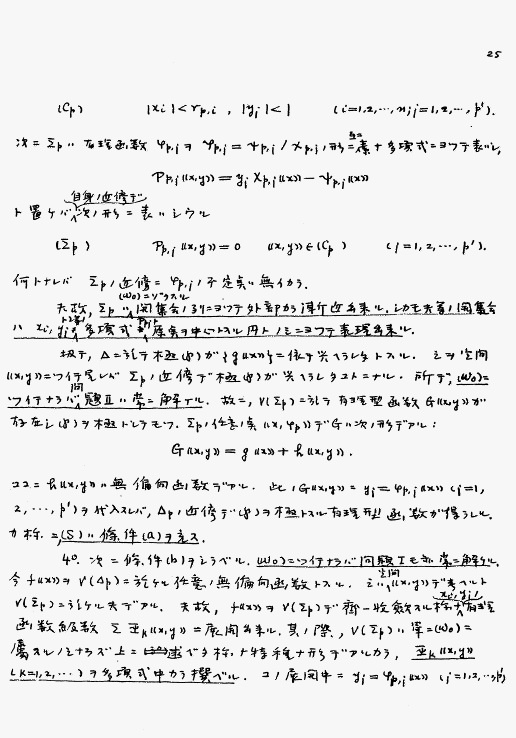 25
(C_p) |x_i| < r_{p,i} , |y_j| < 1 (i=1,2,…,n; j=1,2,…,p').
次ニ Σ_p ハ 有理函数 φ_{p,j} ヲ φ_{p,j} = ψ_{p,j} / χ_{p,j} ノ形ニ 多項式ニヨツテ表ハシ,
P_{p,j}((x,y)) = y_j χ_{p,j}((x)) − ψ_{p,j}((x))
自身ノ近傍デ
ト置ケバ 次ノ形ニ表ハシウル
(Σ_p) P_{p,j}((x,y)) = 0 ((x,y)) ∈ (C_p) (j=1,2,…,p').
何トナレバ Σ_p ノ近傍ニ φ_{p,j} ノ不定点ハ無イカラ.
夫故, Σ_p ハ 閉集合ノミニヨツテ外部カラ 近出来ル. シカモ 夫等ノ閉集合
ハ x_i, y_j 多項式 原点ヲ中心トスル円トノミニヨツテ表現出来ル.
扨テ, Δニ於テ極(℘)ガ{g((x))}ニ依テ与ヘラレタトスル. 之ヲ空間
((x,y))ニツイテ見レバ Σ_p ノ近傍デ極(℘)ガ与ヘラレタコトニナル. 所デ, (ω0)ニ
ツイテナラバ 問題Ⅱハ常ニ解ケル. 故ニ, V(Σ_p)ニ於テ 有理型函数 G((x,y)) ガ
存在シ(℘)ヲ極トシテモツ. Σ_p ノ任意ノ点 ((x,φ_p)) デ G ハ次ノ形デアル:
G((x,y)) = g((x)) + h((x,y)).
ココニ h((x,y)) ハ無偏向函数デアル. 此ノ G((x,y)) ニ y_j = φ_{p,j}((x)) (j=1,
2,…,p') ヲ代入スレバ, Δ_p ノ近傍デ(℘)ヲ極トスル有理型函数ガ得ラレル.
カ様ニ, (S)ハ條件(a)ヲ充ス.
4°. 次ニ條件(b)ヲシラベル. (ω0)ニツイテナラバ問題Ⅰモ亦常ニ解ケル.
今 f((x)) ヲ V(Δ_p)ニ於ケル任意ノ無偏向函数トスル. 之ハ空間((x,y))デ考ヘルト
V(Σ_p)ニ於ケル夫デアル. 夫故, f((x)) ヲ V(Σ_p)デ齊一收斂スル 様ナ有理
函数級数 Σ Ξ_k((x,y)) ニ展開出来ル. 其ノ際, V(Σ_p)ハ單ニ(ω0)ニ
屬スルノミナラズ上ニ述ベタ様ナ特種ナ形デアルカラ, Ξ_k((x,y))
(k=1,2,…)ヲ多項式中カラ撰ベル. コノ展開中ニ y_j = φ_{p,j}((x)) (j=1,2,…,p')